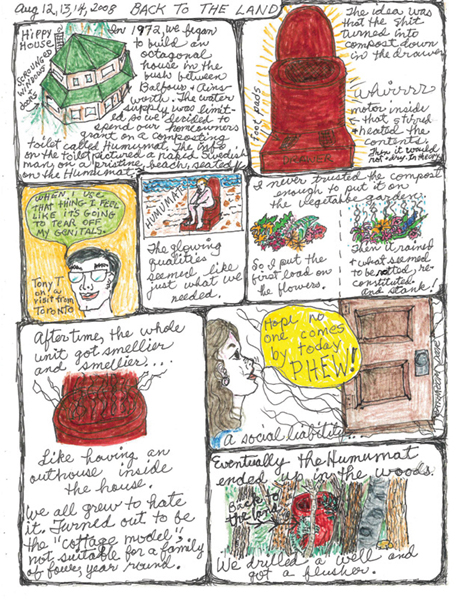 Aug 12, 13, 14, 2008 BACK TO THE LAND
HIPPY
HOUSE
SCREWED UP
WINDOWS
DON'T
In 1972, we began
to build an
octagonal
house in the
bush between
Balfour & Ains-
worth. The water
supply was limit-
ed so we decided to
spend our homeowners
grant on a composting
toilet called Humumat. The info
on the toilet pictured a naked Swedish
man, on a pristine, beach, seated
on the Humumat.
The idea was
that the shit
turned into
compost down
in the drawer
Whirrrr
motor inside
that stirred
& heated the
contents.
Then it would
not & dry. In theory.
foot pads
DRAWER
WHEN I USE
THAT THING I FEEL
LIKE IT'S GOING
TO TEAR OFF
MY GENITALS.
Tony T
on a
visit from
Toronto
HUMUMAT
The glowing
qualities
seemed like
just what we
needed.
I never trusted the compost
enough to put it on
the vegetable garden.
So I put the
first load on
the flowers.
Then it rained
& what seemed
to be rotted, re-
constituted
and stank!
After time, the whole
unit got smellier
and smellier....
Like having an
outhouse inside
the house.
We all grew to hate
it. Turned out to be
the "cottage model",
not suitable for a family
of four, year round.
Hope no
one comes
by today
PHEW!
A social liability...
Eventually the Humumat
ended up in the woods.
Back to
the land
We drilled a well and
got a flusher.